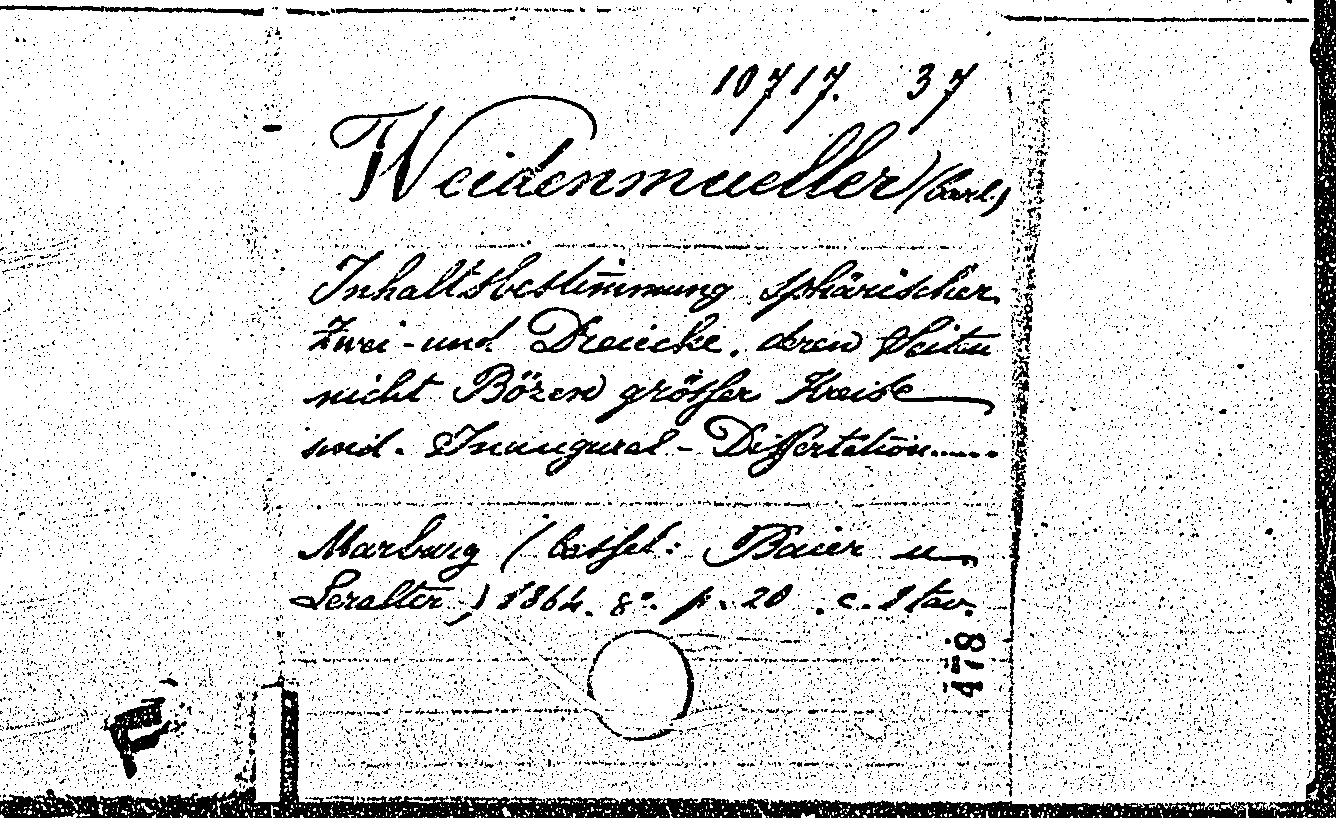 10717. 37
Weidenmueller (Carl.)
Inhaltsbestimmung sphärischer
Zwei- und Dreiecke, deren Seiten
nicht Bözen grösster Kreise
sind. Inaugural-Dissertation......
Marburg (Cassel: Baier u
) 1864. 8°. p. 20 . c. 1 tav.
478